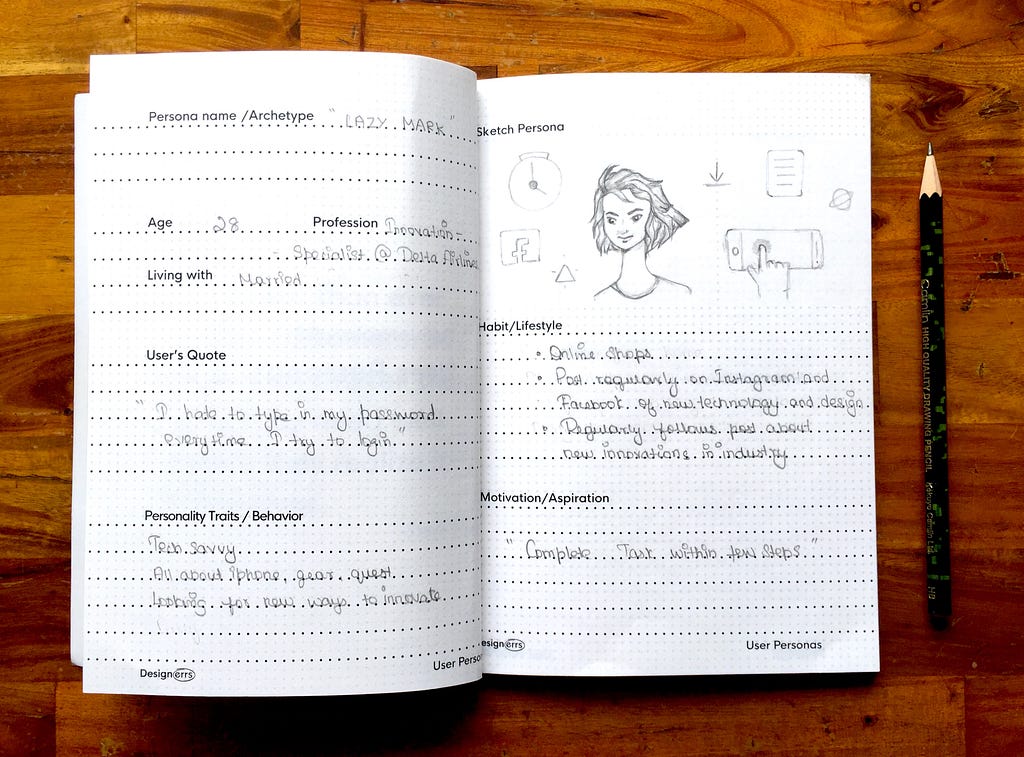 Persona name /Archetype "LAZY MARK"
Age 28 Profession Innovation-
Specialist @ Delta Airlines
Living with Married
User's Quote
"I hate to type in my password
everytime I try to login."
Personality Traits / Behavior
Tech savvy
All about iphone, gear, quest
Looking for new ways to innovate
Designerrs
User Perso
Sketch Persona
f
Habit/Lifestyle
• Online shops
• Post regularly on Instagram and
Facebook of new technology and design
• Regularly follows post about
new innovations in industry
Motivation/Aspiration
"Complete Task within few steps"
esignerrs
User Personas
Camlin HIGH QUALITY DRAWING PENCIL Kokuyo Camlin Ltd HB